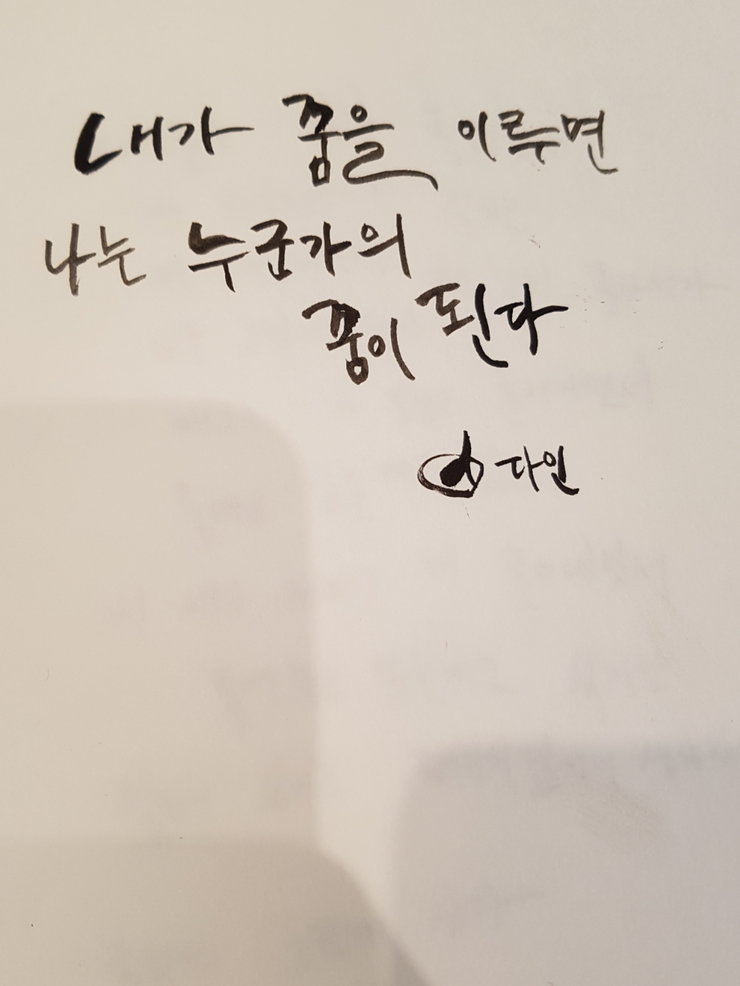 내가 꿈을 이루면
나는 누군가의
꿈이 된다
다인